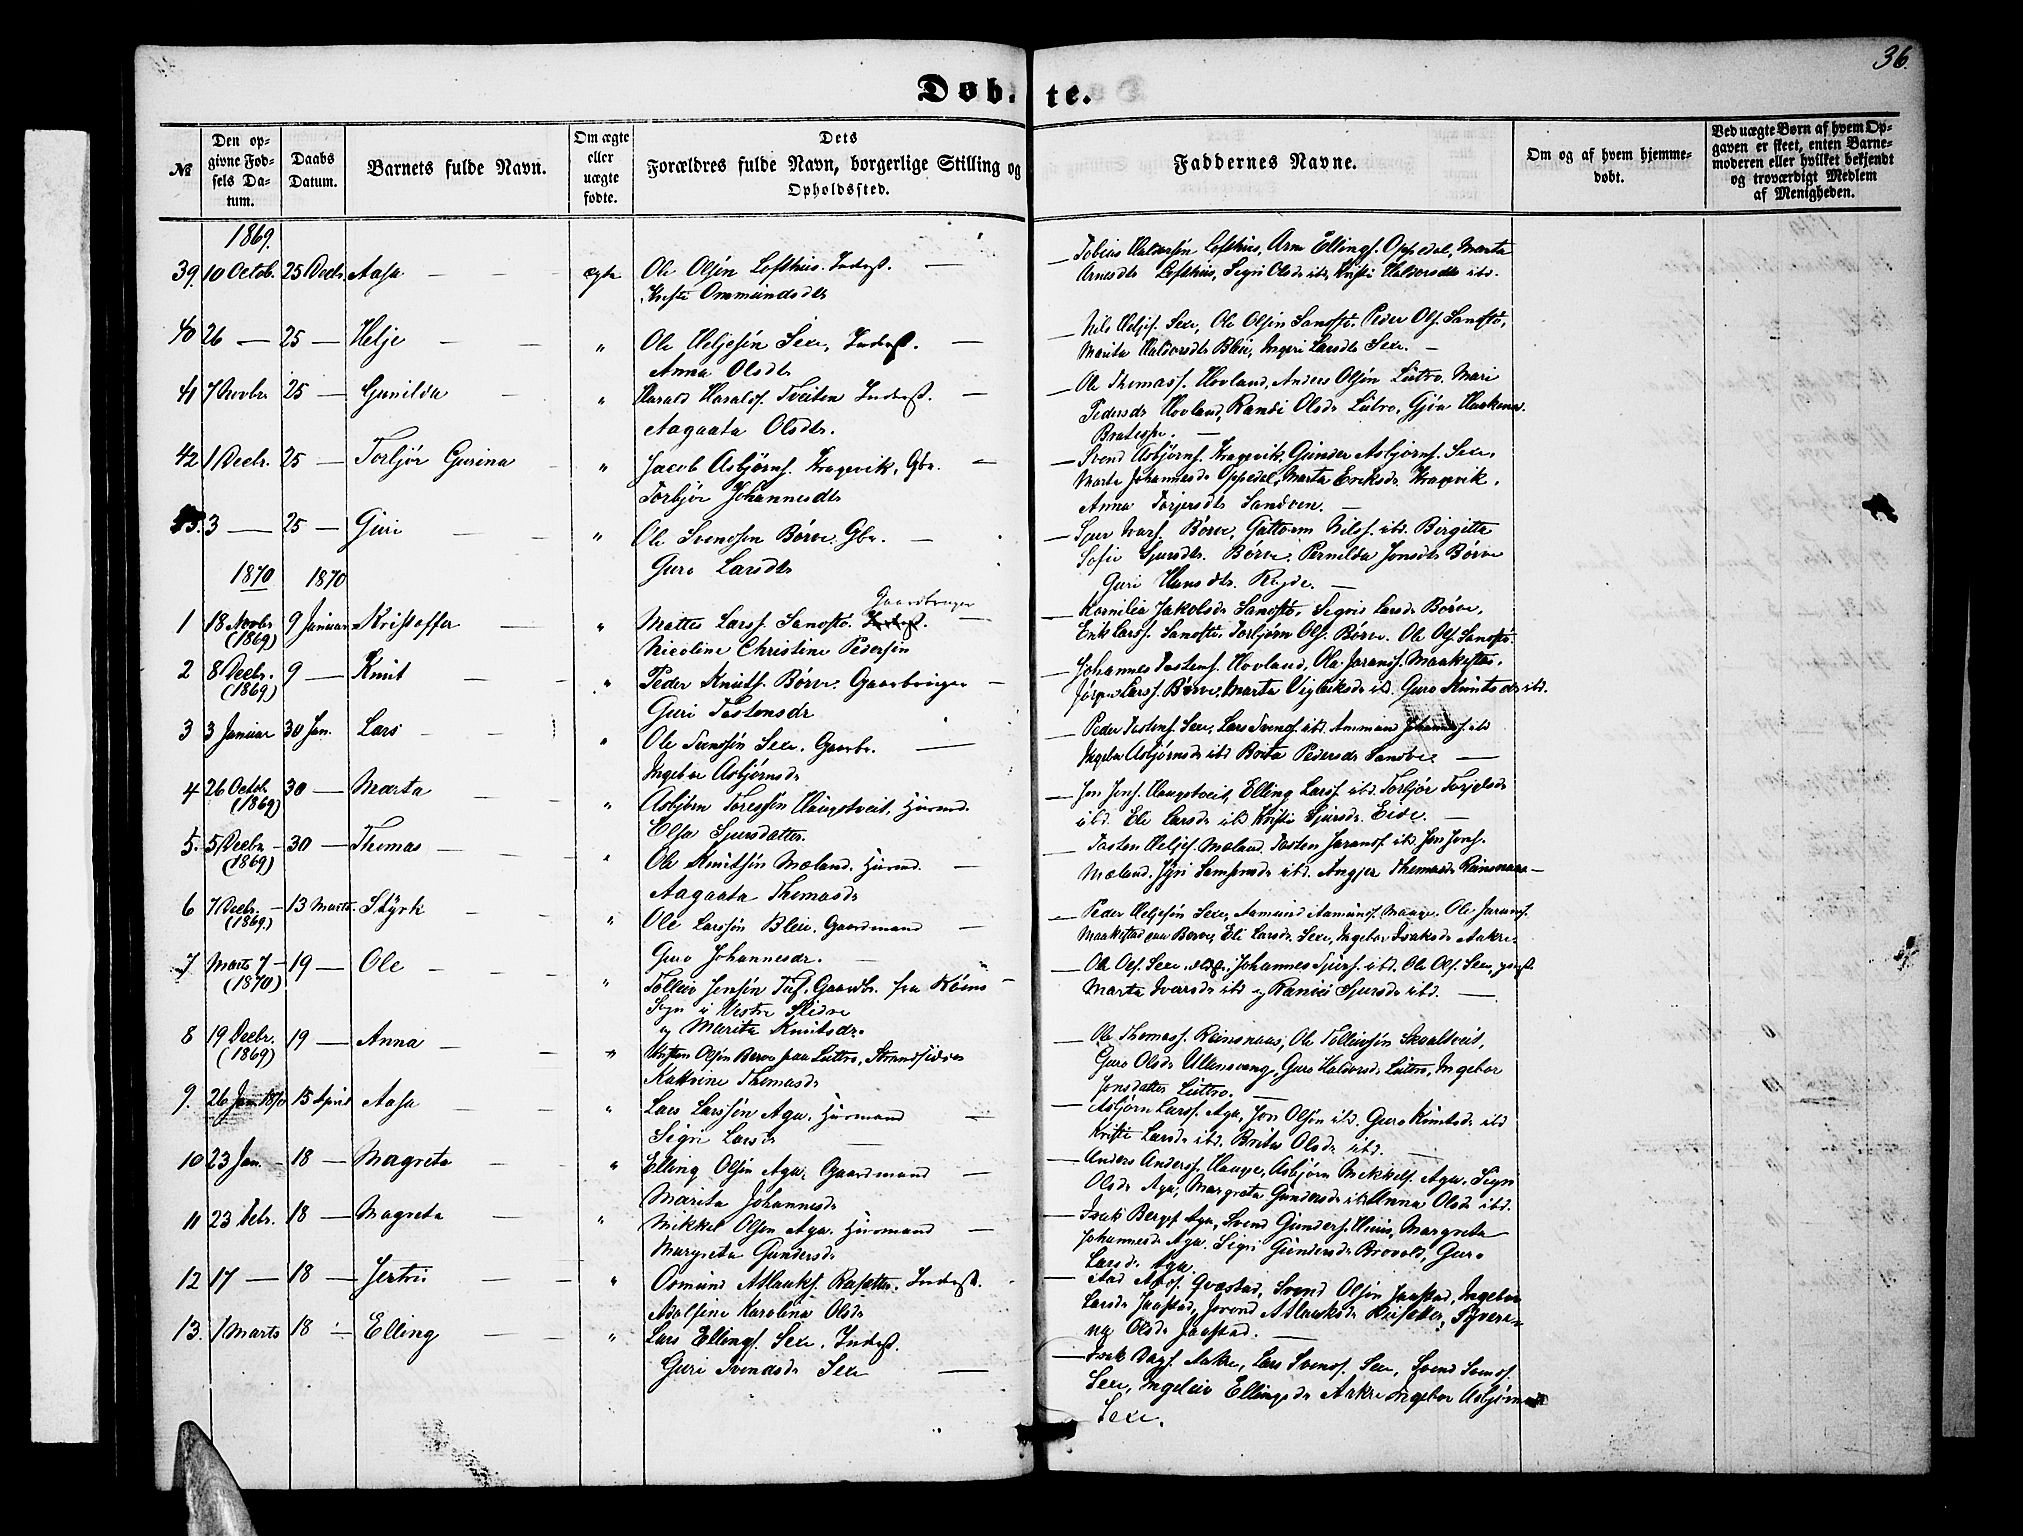 36.
Døbte.
№
Den opgivne Fødsels Datum.
Daabs Datum.
Barnets fulde Navn.
Om ægte eller uægte fødte.
Dets Forældres fulde Navn, borgerlige Stilling og Opholdssted.
Faddernes Navne.
Om og af hvem hjemmedøbt.
Ved uægte Børn af hvem Opgaven er skeet, enten Barnemoderen eller hvilket bekjendt og troværdigt Medlem af Menigheden.
1869.
39. 10 Octob. 25 Decbr. Aasa — — ægte Ole Olsøn Lofthus. Inderst. —
Ommundsdtr
— Tobias Haldorsøn Lofthus, Arne Ellings. Oppedal, Marta
Arnesdtr Lofthus, Sigri Olsdr ibd, Kristi Haldorsdtr ibd.
40 26 — 25 — Helje — — " Ole Heljesøn Sexe, Inderst. —
Anna Olsdtr
— Nils Heljes. Sexe, Ole Olsøn Sandstø, Peder Ols. Sandstø,
Marita Haldorsdtr Bleie, Ingeri Larsdtr Sexe. —
41 7 Novbr. 25 — Gunilda — " Harald Haralds. Tveiten Inderst. —
Aagaata Olsdtr.
— Ole Thomass. Hovland, Anders Olsøn Lutro, Mari
Pedersdr Hovland, Randi Olsdr Lutro, Gjøa Haakens
42 1 Decbr. 25 — Torbjør Gurina — " Jacob Asbjørns. Kragevik, Gbr. —
Torbjør Johannesdtr
— Svend Asbjørns. Kragevik, Gunder Asbjørns. Sexe,
Marta Johannesdr Oppedal, Marta Eriksdr Kragevik,
Anna Torjersdtr Sandven. —
3 — 25 — Guri — — " Ole Svendssen Børve Gbr. —
Guro Larsdtr
— Sjur Ivars. Børve, Guttorm Nilss. ibd. Birgitta
Sofie Sjursdtr. Børve, Pernilda Jonsdtr Børve
Guri Hansdtr. —
1870 1870
1 18 Novbr (1869) 9 Januar Kristoffer — " Mattes Larss. Sandstø. Gaardbruger —
Nicoline Christine Pedersen
— Kornelia Jakobsdr Sandstø, Sigri Larsdr Børve,
Erik Larss. Sandstø, Torbjørn Ols. Børve. Ole Ols. Sandstø
2 8 Decbr. (1869) 9 — Knut — — " Peder Knuts. Børve. Gaardbruger —
Guri Tostensdr
— Johannes Tostens. Hovland, Ola Jarands. Maakestad,
Jørgen Larss. Børve, Marta Vigleiksdr ibd, Guro Knutsdr ibd.
3 3 Januar 30 Jan. Lars — — " Ole Svenssøn Sexe. Gaardbr. —
Ingebor Asbjørnsdr
— Peder Tostens. Sexe, Lars Svends. ibd Ammund Johanness. ibd
Ingebor Asbjørnsdr ibd Brita Pedersdr Sandve. —
4 26 Octob. (1869) 30 — Marta — — " Asbjørn Toressøn Haugstveit, Huusmd.
Elsa Sjursdatter.
— Jon Jons. Haugstveit, Elling Larss. ibd. Torbjør Torjelsdr
ibd. Eli Larsdr ibd Kristi Sjursdr. Eide. —
5. 5 Decbr — (1869) 30 — Thomas — — " Ole Knutsøn Mæland. Huusmd. —
Aagaata Thomasdr
— Tosten Heljes. Mæland. Tosten Jarands. ibd. Jon Jons.
Mæland. Samsonsdr ibd. Angjer Thomasdr Reinsnaas —
6 7 Decbr. — (1869.) 13 Marts. Styrk — — " Ole Larssøn Bleie. Gaardmand —
Guro Johannesdr. —
— Peder Heljesøn Sexe, Aamund Aamunds. Mauge. Ole Jarands.
Maakestad paa Børve, Eli Larsdr. Sexe, Ingebor Isaksdr Aakre.
7 Marts 7 — (1870) 19 — Ole — — " Tollev Jensøn Tuf. Gaardbr. fra
Sogn i Vestre Slidre
og Marita Knutsdr.
— Ole Ols. Sexe ældst. Johannes Sjurs. ibd. Ole Ols. Sexe, yngst.
Marta Iversdr ibd og Randi Sjursdr ibd. —
8 19 Decbr. (1869) 19 — Anna — — " Olsøn Børve paa Lutro, Strandsidder
Katrine Thomasdr
— Ole Thomass. Reinsnaas, Ole Tollevsøn Skaaltveit,
Guro Olsdr Ullensvang, Guro Haldorsdr Lutro, Ingebor
Jonsdatter Lutro. —
9. 26 Jan. 1870 15 April Aasa — — " Lars Larssøn Aga, Huusmand —
Sigri Larsdr —
— Asbjørn Larss. Aga, Jon Olsøn ibd. Guro Knutsdr ibd
Kristi Larsdr ibd. Brita Olsdr ibd. —
10 23 Jan. — 18 — Magreta — — " Elling Olsøn Aga. Gaardmand —
Marita Johannesdr
— Anders Anderss. Hauge, Asbjørn Mikkels. Aga. Sigri
Olsdr Aga, Margreta Gundersdr ibd Anna Olsdr ibd.
11 23 Febr. 18 — Magreta — " Mikkel Olsøn Aga. Huusmand —
Margreta Gundersdr
— Isak Bergs. Aga, Svend Gunders. Huus, Margreta
Johannesdr Aga. Sigri Gundersdr Brovold, Guro
Larsdr Aga.
12 17 — 18 — Jertru — — " Osmund Aslaks. Raisetter. Inderst.
Adolfine Karolina Olsdr
— Qvestad, Svend Olsøn Jaastad, Ingebor
Larsdr Jaastad, Jorend Aslaksdr Reisetter, Syveri-
na Olsdr Jaastad. —
13. 1 Marts 18 — Elling — — " Lars Ellings. Sexe, Inderst.
Guri Svendsdr Sexe —
— Isak Dags. Aakre, Lars Svends. Sexe, Svend Svends.
Sexe, Ingeleiv Ellingsdr Aakre Ingebor Asbjørnsdr
Sexe.